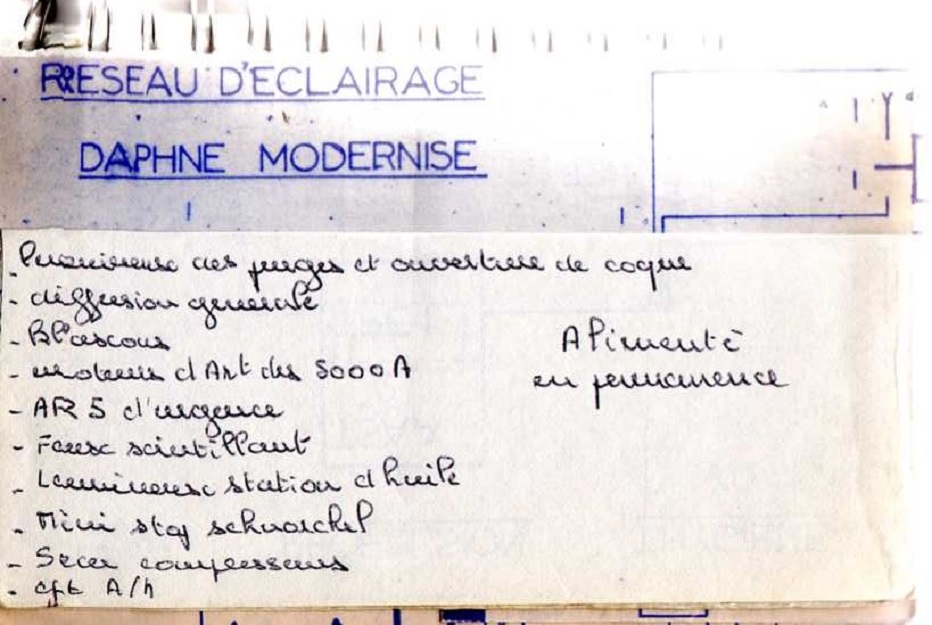 RESEAU D'ECLAIRAGE
DAPHNE MODERNISE
Lumineuse des purges et ouverture de coque
- diffusion generale
-
- moteurs d'Art des 5000A
- AR5 d'urgence
- Feux scintillant
- Lumineuse station d huile
- Mini stop schnorchel
- Secu compresseurs
- A/n
Alimenté
en permanence